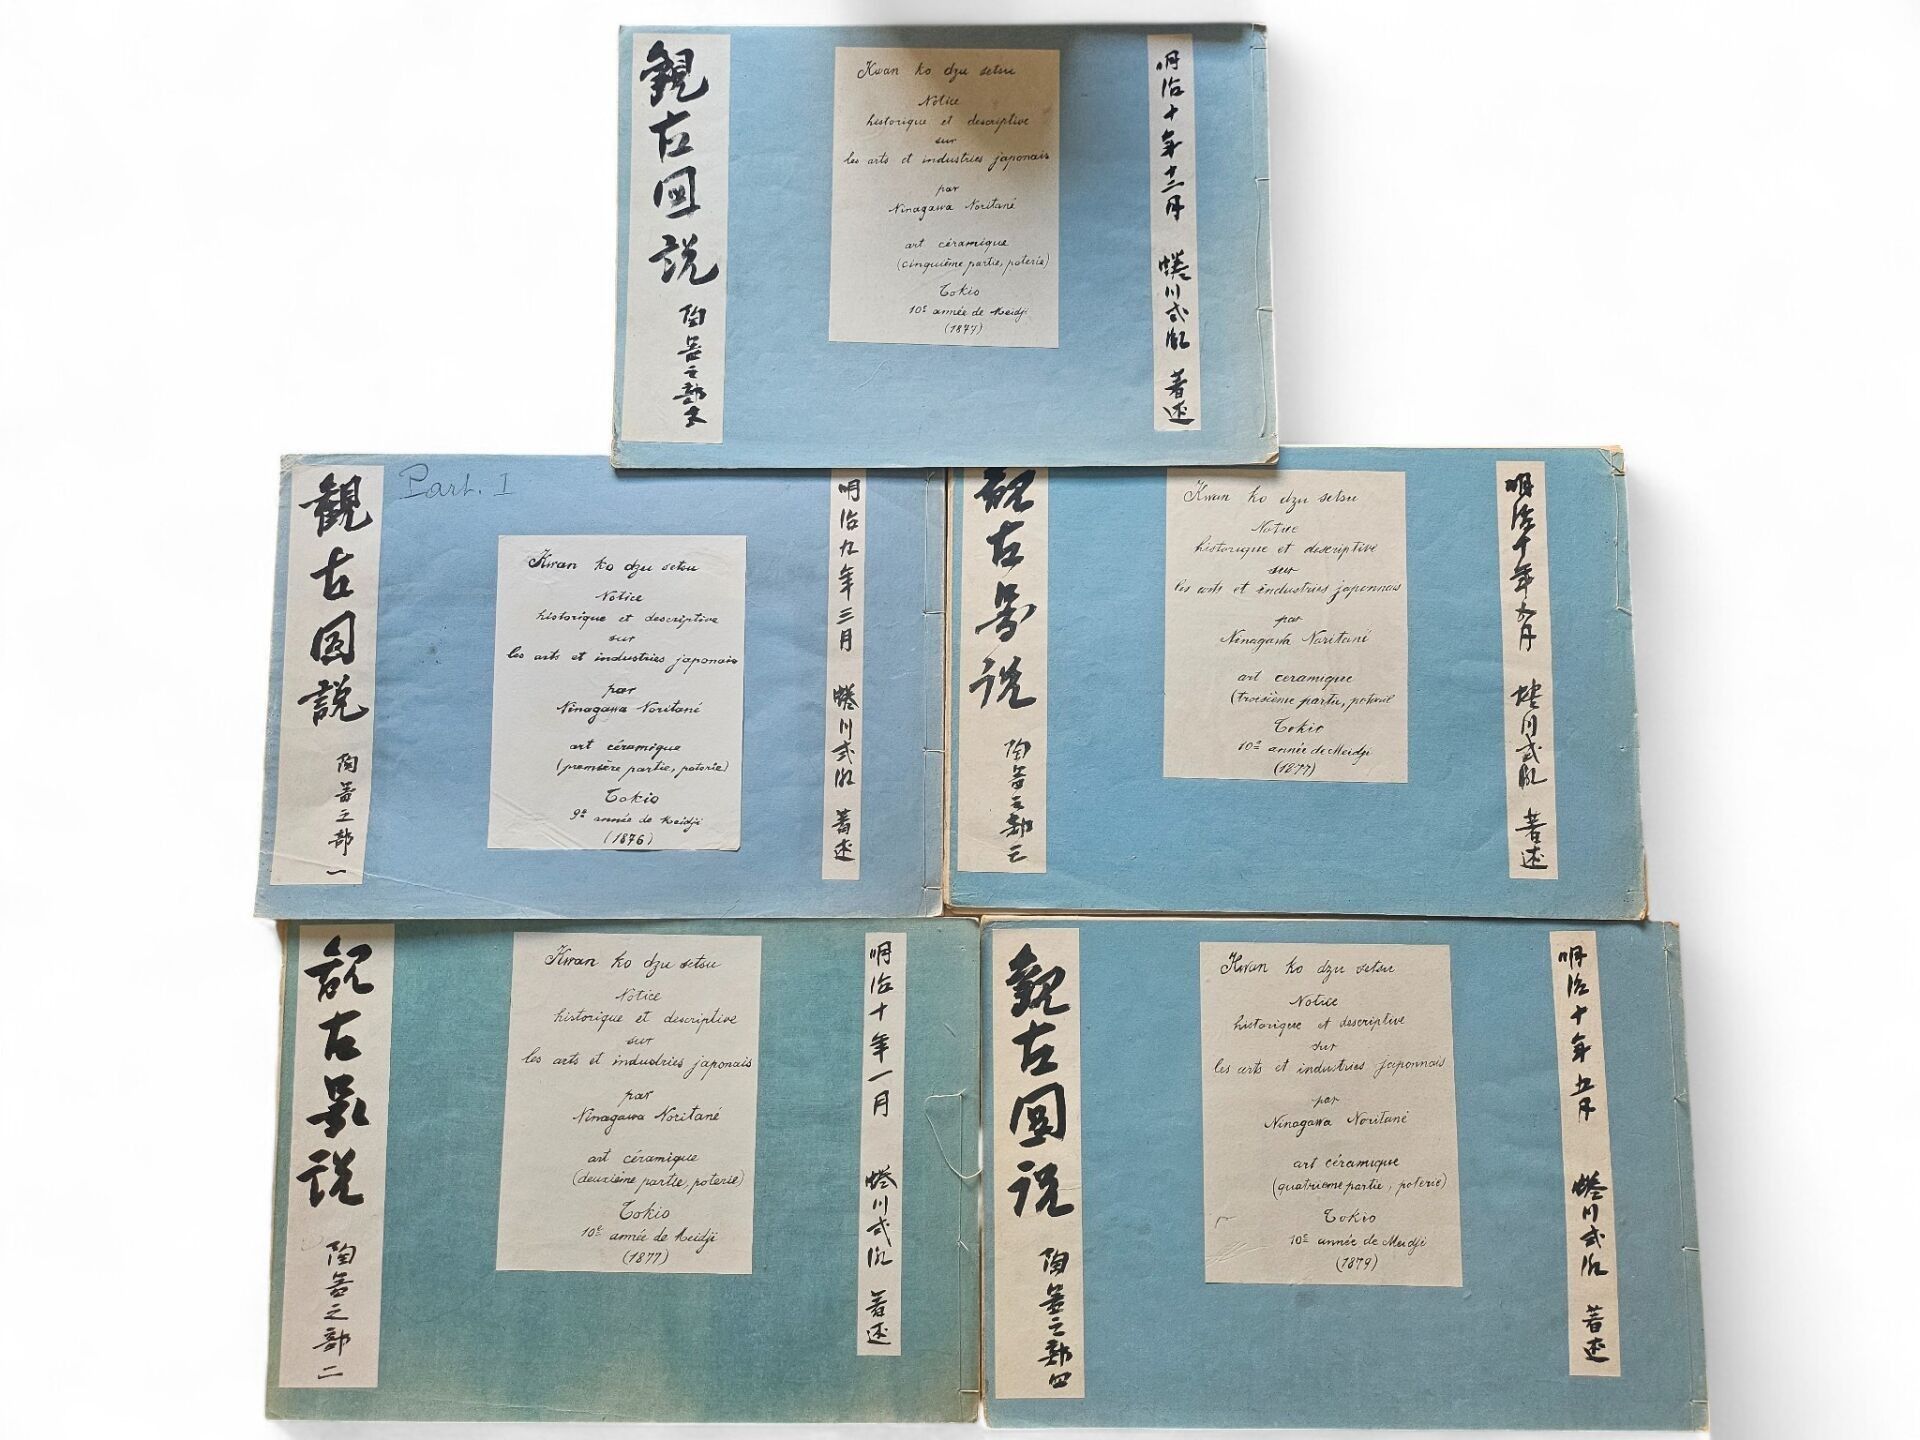 観古図説
陶器之部
Kwan ko dzu setsu
Notice
historique et descriptive
sur
les arts et industries japonais
par
Ninagawa Noritané
art céramique
(cinquième partie, poterie)
Tokio
10e année de Meidji
(1877)
明治十年十二月
蜷川式胤
著述
観古図説
陶器之部一
Part. I
Kwan ko dzu setsu
Notice
historique et descriptive
sur
les arts et industries japonais
par
Ninagawa Noritané
art céramique
(première partie, poterie)
Tokio
9e année de Meidji
(1876)
明治九年三月
蜷川式胤
著述
観古
説
陶器之部三
Kwan ko dzu setsu
Notice
historique et descriptive
sur
les arts et industries japonnais
par
Ninagawa Noritané
art ceramique
(troisième partie, poterie
Tokio
10e année de Meidji
(1877)
明治十年
月
蜷川式胤
著述
観古
説
陶器之部二
Kwan ko dzu setsu
Notice
historique et descriptive
sur
les arts et industries japonais
par
Ninagawa Noritané
art céramique
(deuxième partie, poterie)
Tokio
10e année de Meidji
(1877)
明治十年一月
蜷川式胤
著述
観古図説
陶器之部四
Kwan ko dzu setsu
Notice
historique et descriptive
sur
les arts et industries japonnais
par
Ninagawa Noritané
art céramique
(quatrieme partie, poterie)
Tokio
10e année de Meidji
(1879)
明治十年五月
蜷川式胤
著述